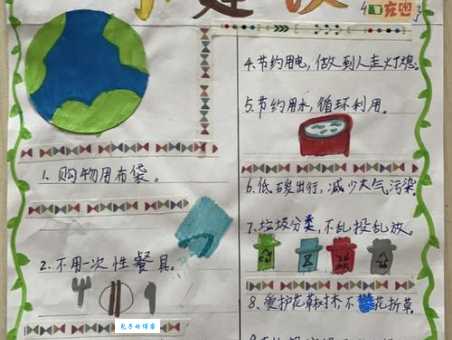 建议
1. 购物用布袋。
2. 不用一次性餐具。
4. 节约用电，做到人走灯熄。
5. 节约用水，循环利用。
6. 低碳出行，减少大气污染
7. 垃圾分类，不乱投乱放。
8. 爱护花草树木，不 花折草。